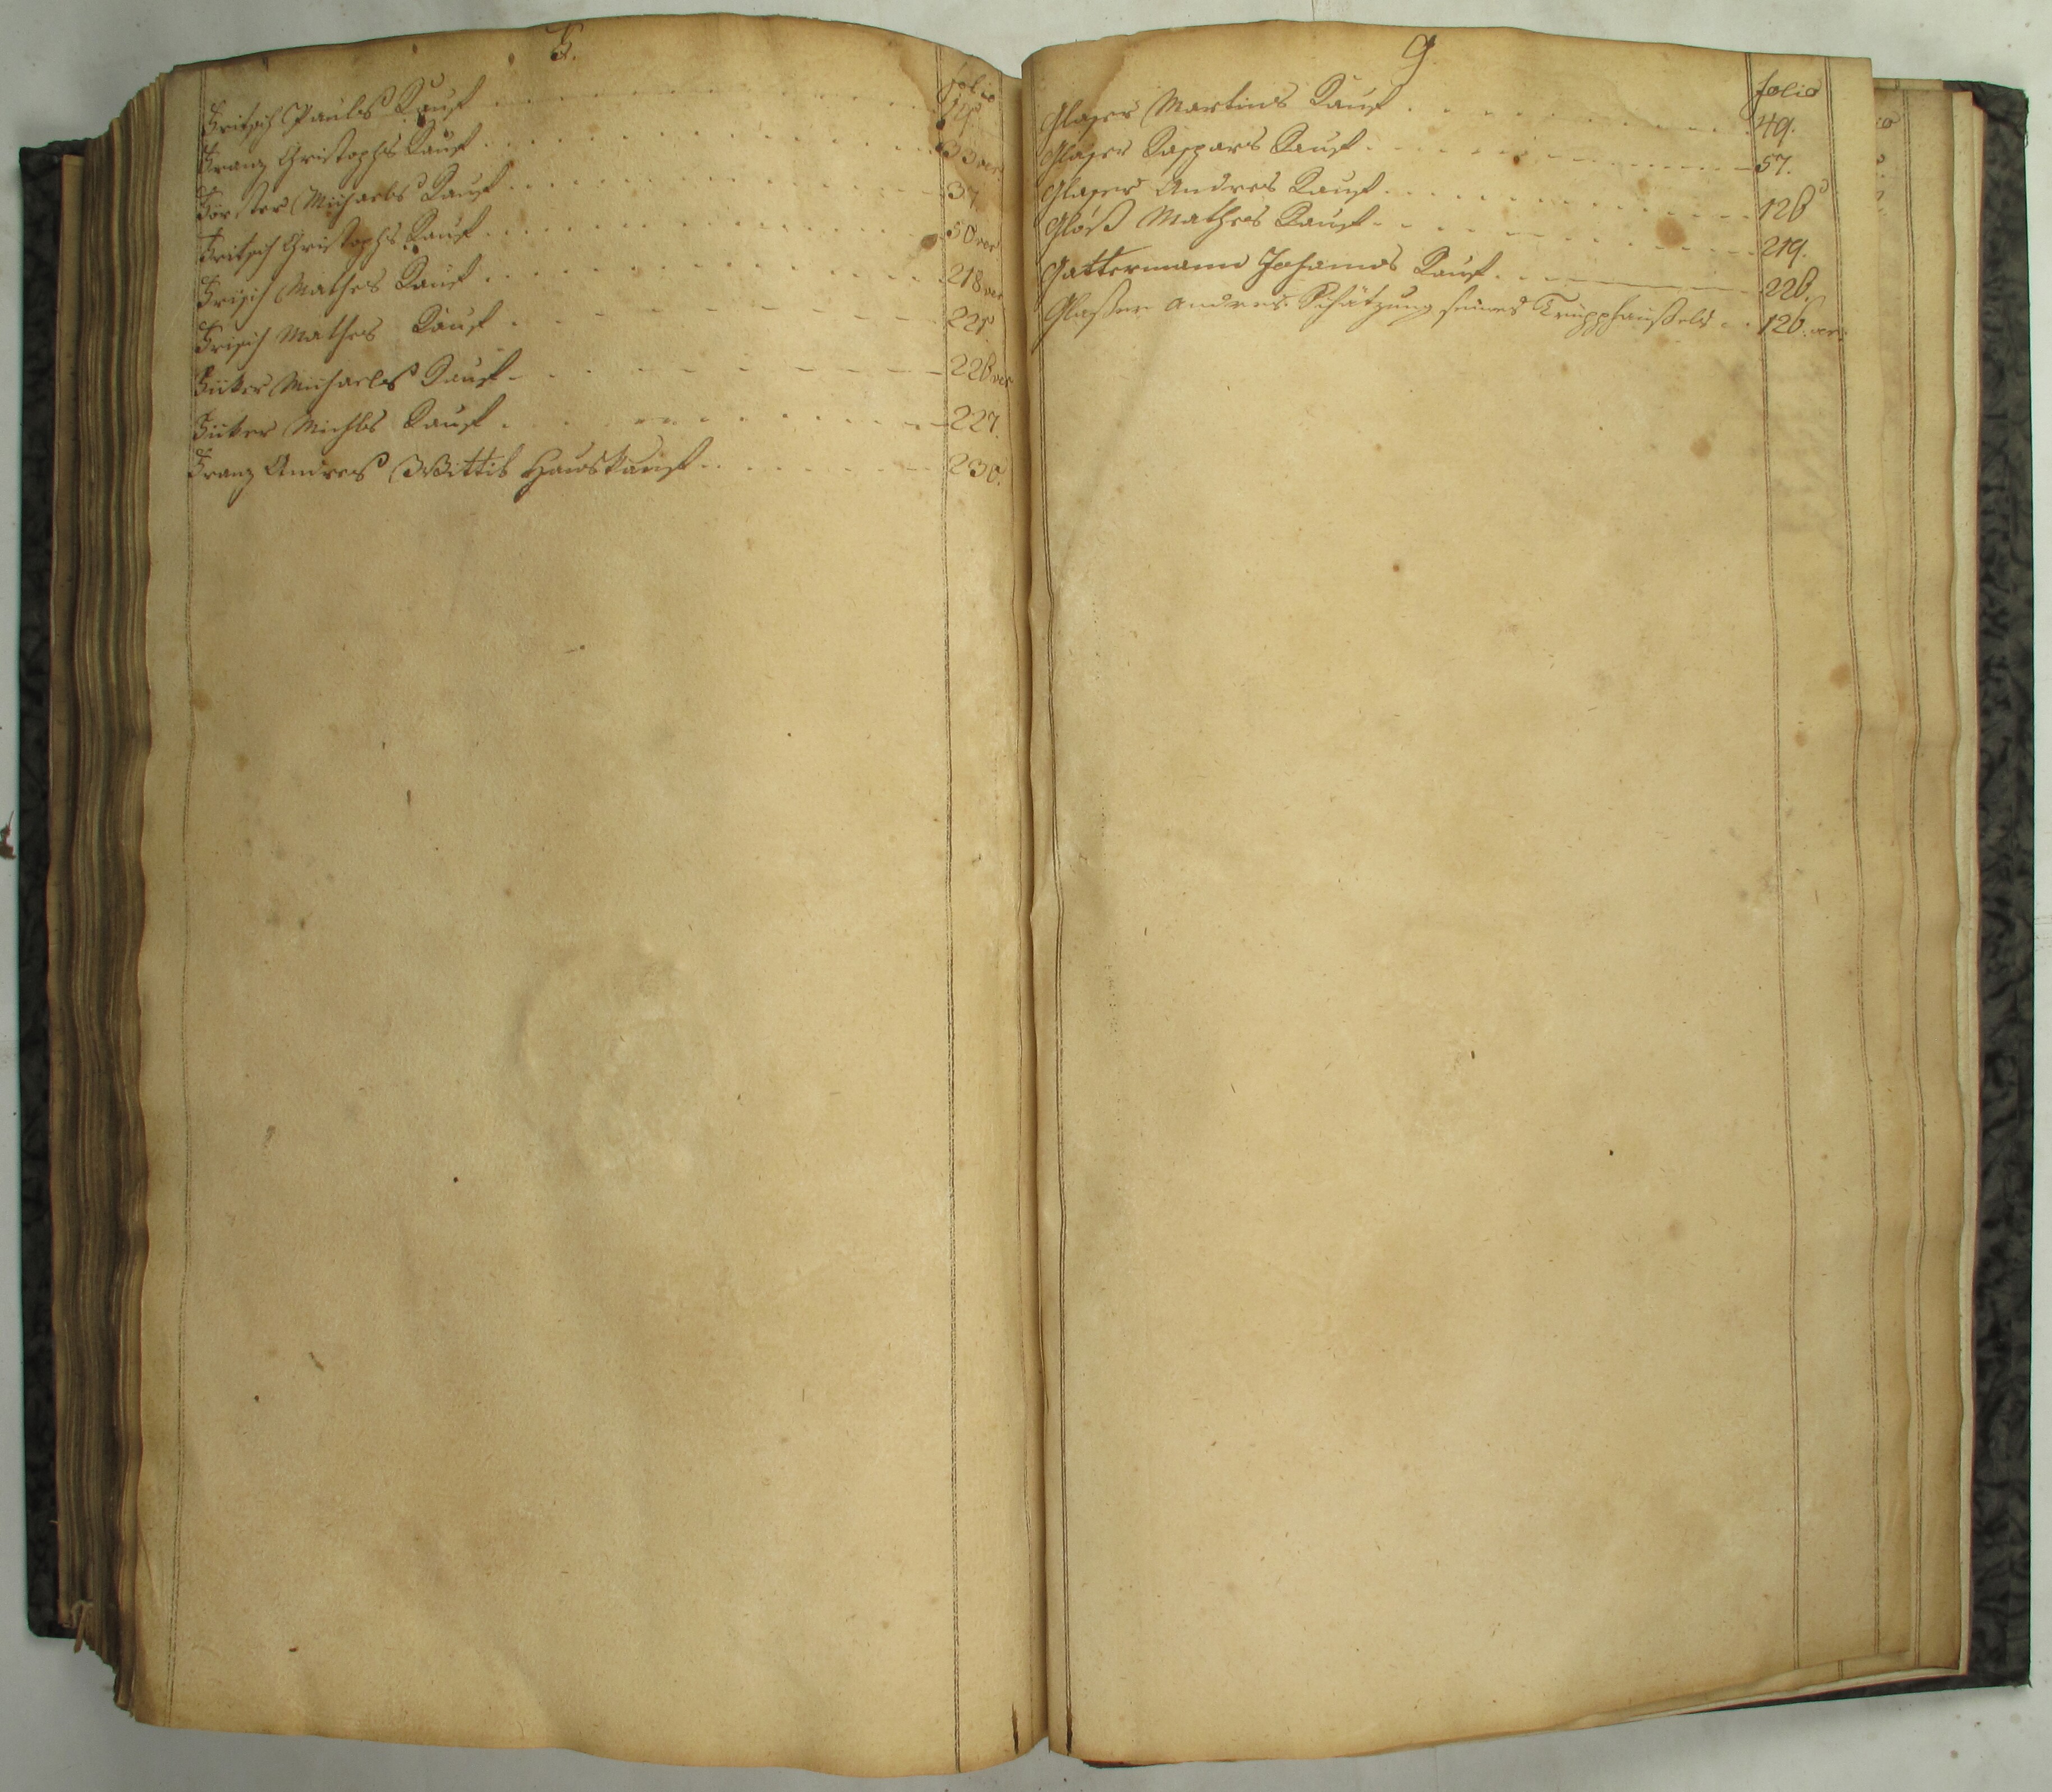 F.
folio
Fritsch Paules Kauf
Franz Christophs Kauf 33 ver.
Förster Michaels Kauf 37
Fritsch Christophs Kauf 50 ver
Frisch Mathes Kauf 218 ver
Frisch Mathes Kauf 221.
Füker Michaels Kauf 226 ver
Füker Michls Kauf 227.
Franz Andres Wittib Hauskauf 230.
G.
folio
Glaser Martins Kauf 49.
Glaser Kaspars Kauf 57.
Glaser Andres Kauf 126
Glöß Mathes Kauf 219.
Gattermann Johannes Kauf 226.
Glaßer Andres Schätzung seines 126. ver: